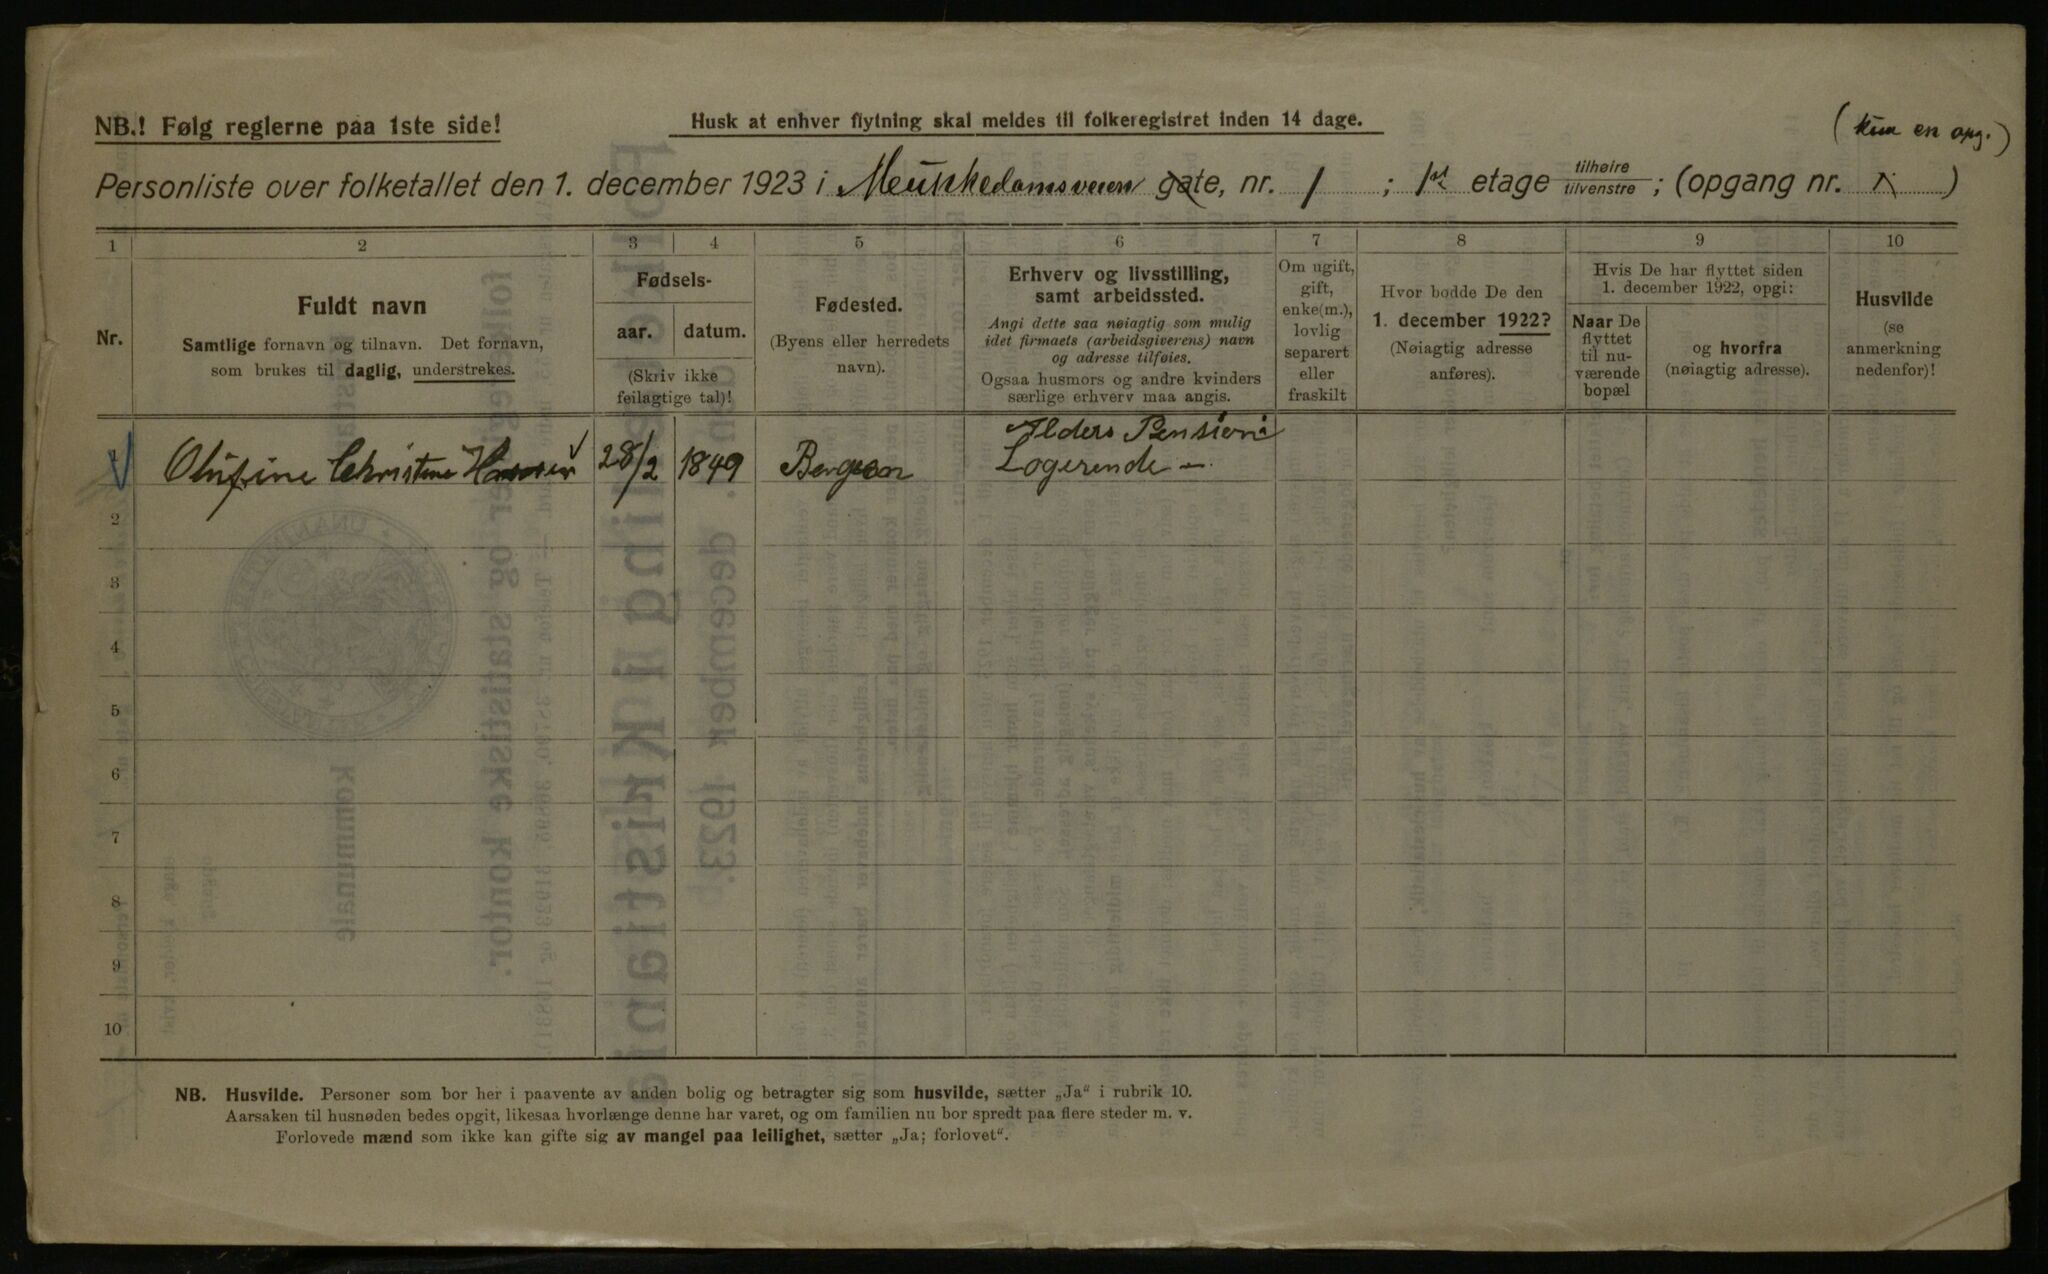 NB.! Følg reglerne paa 1ste side!
Husk at enhver flytning skal meldes til folkeregistret inden 14 dage.
(kun en opg.)
Personliste over folketallet den 1. december 1923 i Munkedamsveien gate, nr. 1 ; 1st etage tilhøire tilvenstre ; (opgang nr. )
1 2 3 4 5 6 7 8 9 10
Nr.
Fuldt navn
Samtlige fornavn og tilnavn. Det fornavn,
som brukes til daglig, understrekes.
Fødsels-
aar. datum.
(Skriv ikke
feilagtige tal)!
Fødested.
(Byens eller herredets
navn).
Erhverv og livsstilling,
samt arbeidssted.
Angi dette saa nøiagtig som mulig
idet firmaets (arbeidsgiverens) navn
og adresse tilføies.
Ogsaa husmors og andre kvinders
særlige erhverv maa angis.
Om ugift,
gift,
enke(m.),
lovlig
separert
eller
fraskilt
Hvor bodde De den
1. december 1922?
(Nøiagtig adresse
anføres).
Hvis De har flyttet siden
1. december 1922, opgi:
Naar De
flyttet
til nu-
værende
bopæl
og hvorfra
(nøiagtig adresse).
Husvilde
(se
anmerkning
nedenfor)!
Alders Pension
1 Olufine Christine Hansen 28/2 1849 Bergen Logerende
2
3
4
5
6
7
8
9
10
NB. Husvilde. Personer som bor her i paavente av anden bolig og betragter sig som husvilde, sætter „Ja" i rubrik 10.
Aarsaken til husnøden bedes opgit, likesaa hvorlænge denne har varet, og om familien nu bor spredt paa flere steder m. v.
Forlovede mænd som ikke kan gifte sig av mangel paa leilighet, sætter „Ja; forlovet".